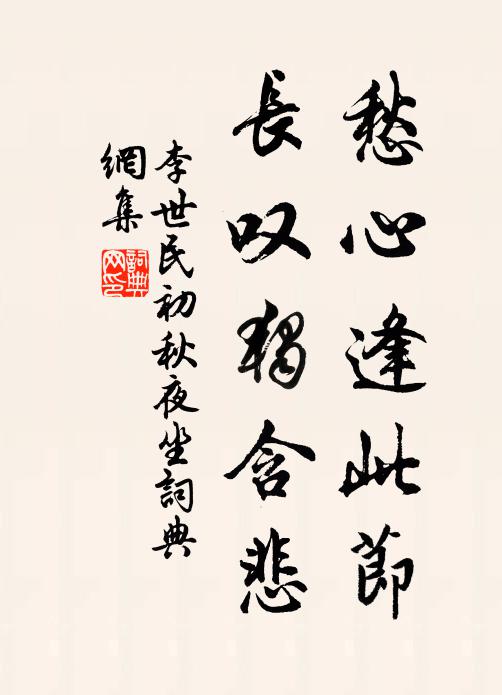 愁心逢此節
長叹獨含悲
李世民初秋夜坐詞典
網集
詞典网印